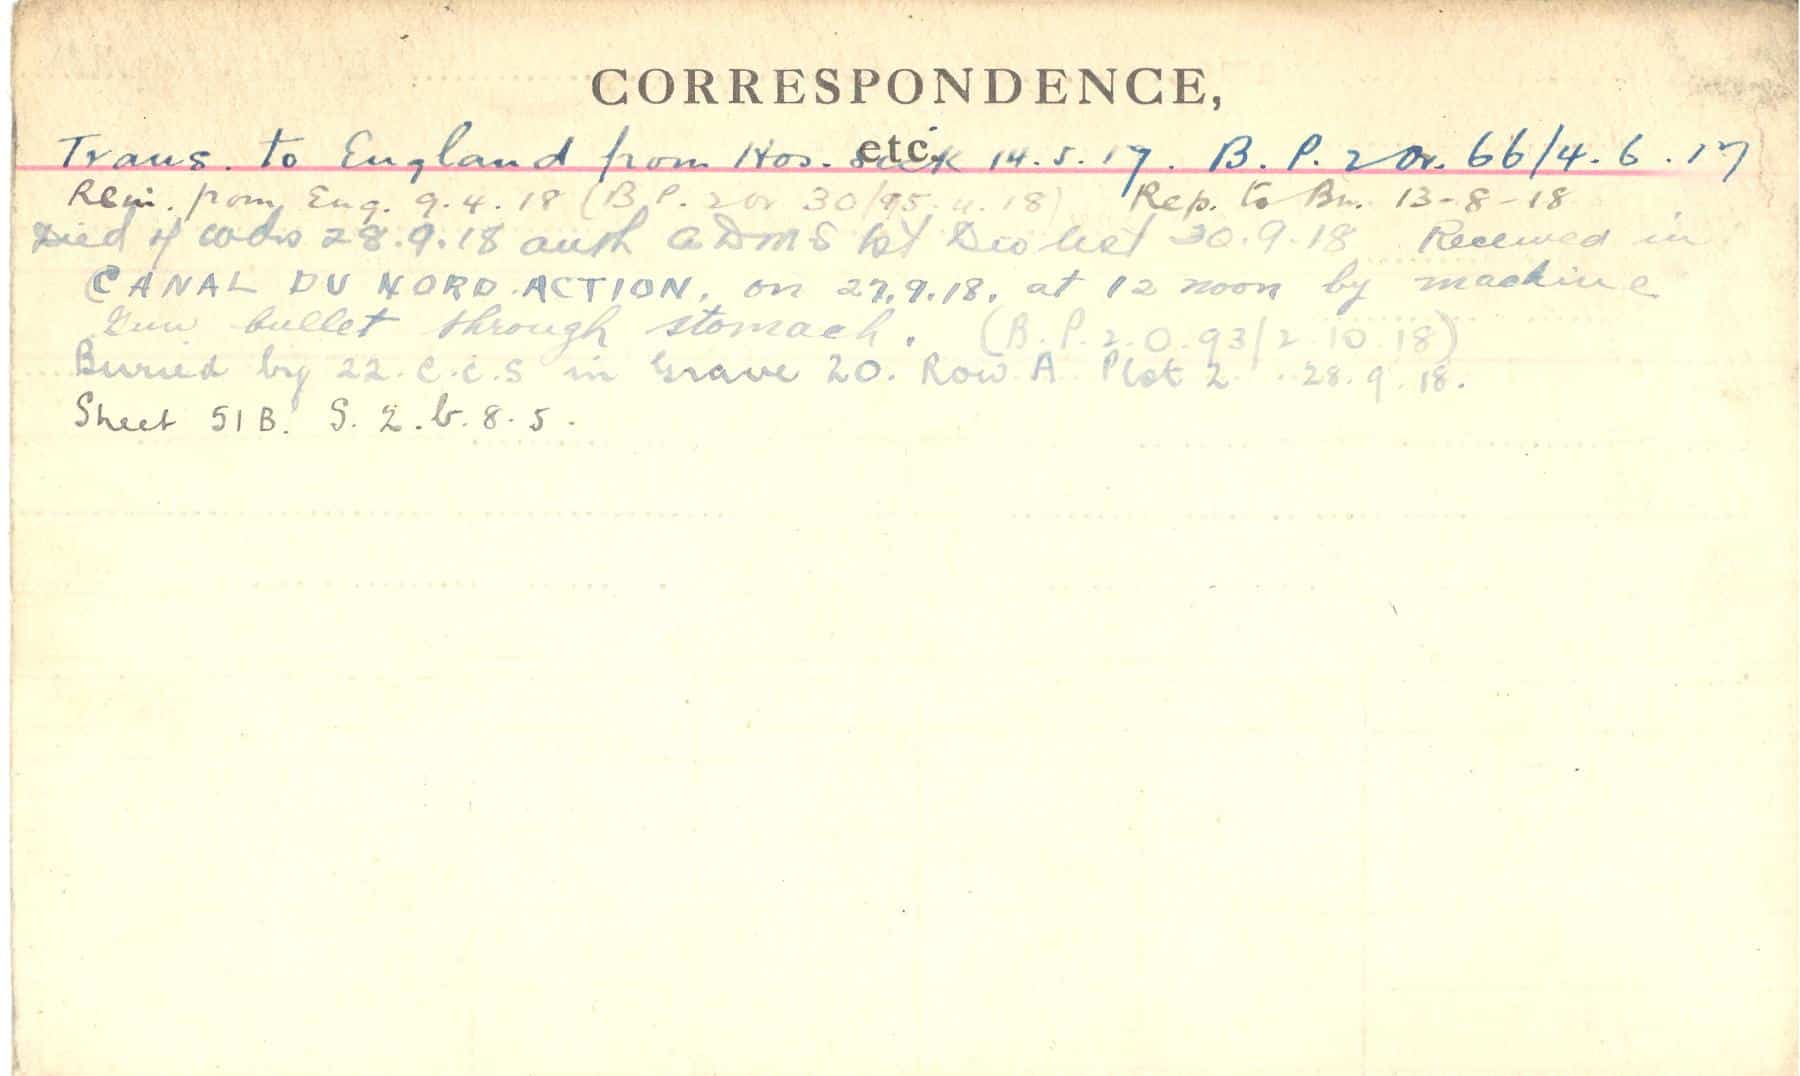 CORRESPONDENCE,
etc.
Trans. to England from Hos. sick 14.5.17. B.P. 2 Or. 66/4.6.17
Rein. from Eng. 9.4.18 (B.P. 2 or 30/ .4.18) Rep. to Bn. 13-8-18
Died of wds 28.9.18 auth ADMS 1st Div list 30.9.18 Received in
CANAL DU NORD ACTION, on 27.9.18, at 12 noon by machine
Gun bullet through stomach. (B.P. 2.0.93/2.10.18)
Buried by 22.C.C.S in Grave 20. Row A. Plot 2. 28.9.18.
Sheet 51B. S.2.b.8.5.